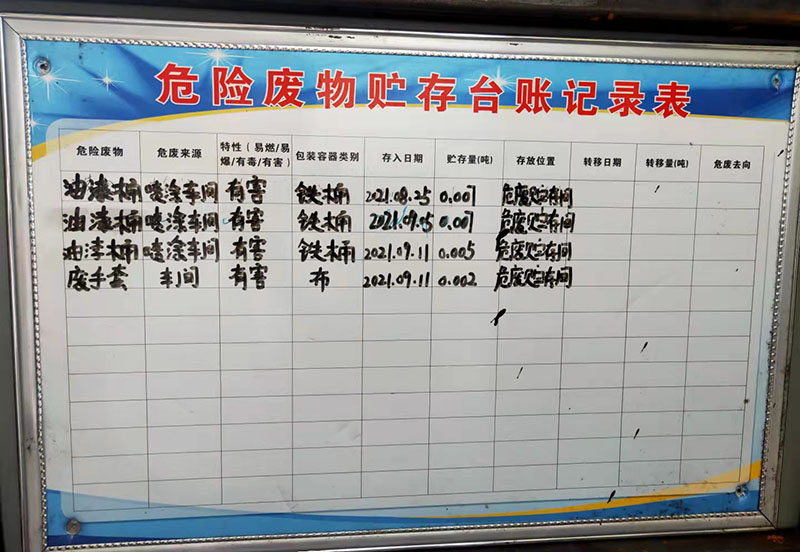 危险废物贮存台账记录表
危险废物 危废来源 特性（易燃/易爆/有毒/有害） 包装容器类别 存入日期 贮存量(吨) 存放位置 转移日期 转移量(吨) 危废去向
油漆桶 喷涂车间 有害 铁桶 2021.08.25 0.007 危废贮存间
油漆桶 喷涂车间 有害 铁桶 2021.09.05 0.007 危废贮存间
油漆桶 喷涂车间 有害 铁桶 2021.09.11 0.005 危废贮存间
废手套 车间 有害 布 2021.09.11 0.002 危废贮存间